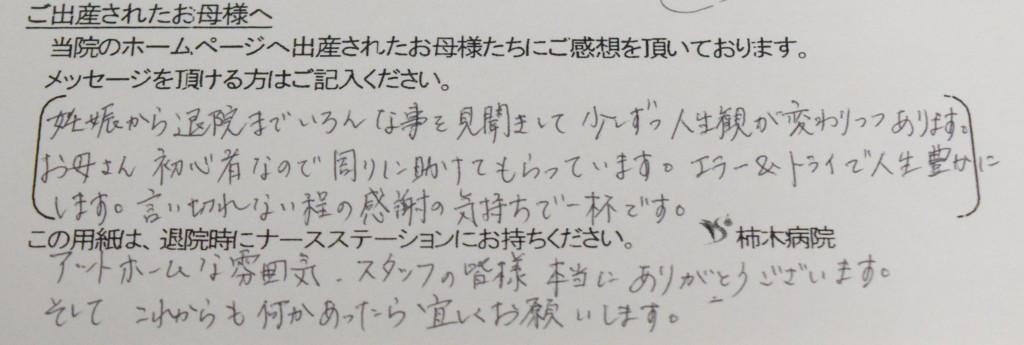 ご出産されたお母様へ
当院のホームページへ出産されたお母様たちにご感想を頂いております。
メッセージを頂ける方はご記入ください。
妊娠から退院までいろんな事を見聞きして少しずつ人生観が変わりつつあります。
お母さん初心者なので周りに助けてもらっています。エラー&トライで人生豊かに
します。言い切れない程の感謝の気持ちで一杯です。
この用紙は、退院時にナースステーションにお持ちください。 柿木病院
アットホームな雰囲気、スタッフの皆様 本当にありがとうございます。
そして これからも何かあったら宜しくお願いします。